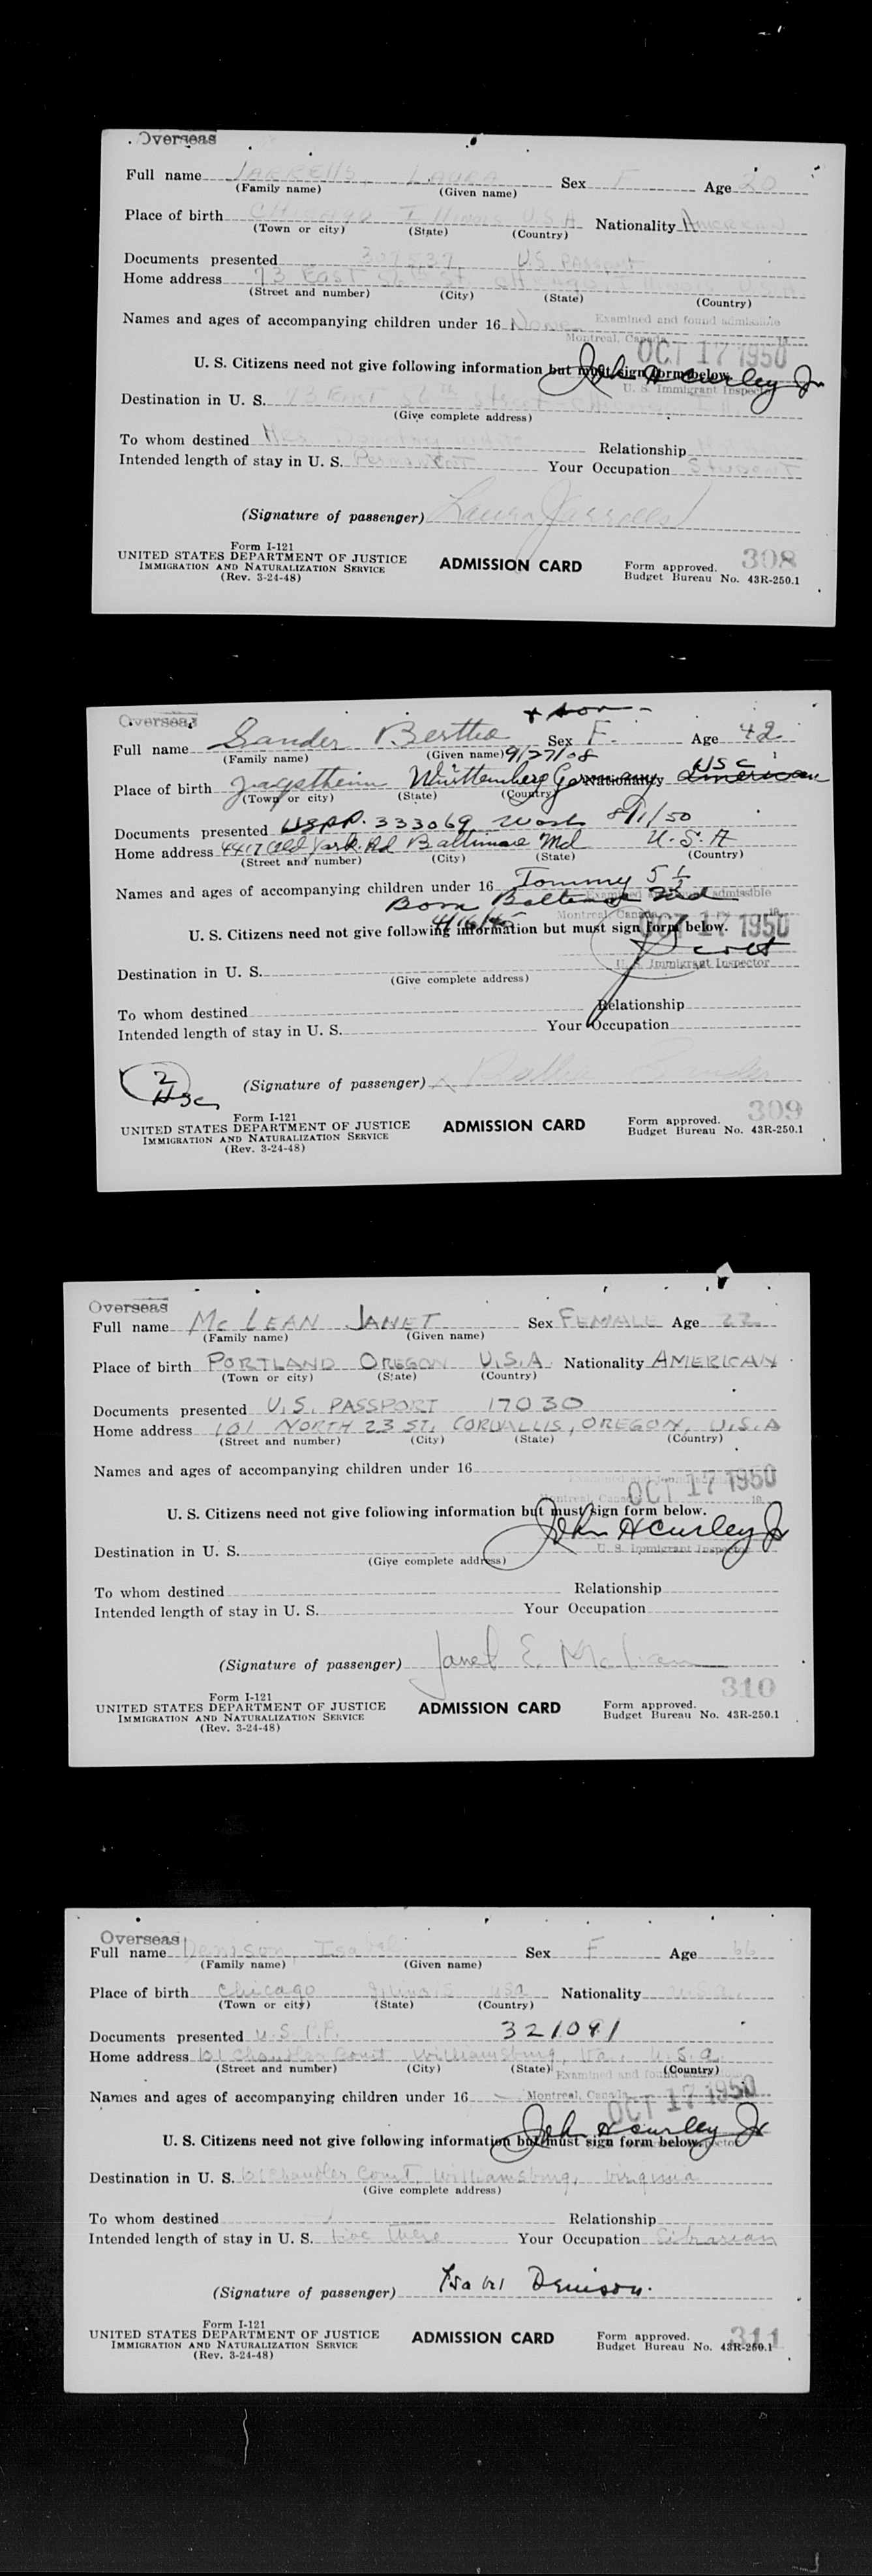 Overseas
Full name JARRELLS, LAURA Sex F Age 20
(Family name) (Given name)
Place of birth Chicago Illinois U.S.A Nationality American
(Town or city) (State) (Country)
Documents presented US Passport
Home address 73 East Chicago, Illinois U.S.A
(Street and number) (City) (State) (Country)
Names and ages of accompanying children under 16 None
Examined and found admissible
Montreal, Canada OCT 17 1950
U. S. Citizens need not give following information but must sign form below.
John H Curley Jr
U. S. Immigrant Inspector
Destination in U. S. 73 East Street
(Give complete address)
To whom destined Mrs Dorothy Relationship
Intended length of stay in U. S. Permanent Your Occupation Student
(Signature of passenger) Laura Jarrells
Form I-121
UNITED STATES DEPARTMENT OF JUSTICE
IMMIGRATION AND NATURALIZATION SERVICE
(Rev. 3-24-48)
ADMISSION CARD
Form approved.
Budget Bureau No. 43R-250.1
308
Overseas + son -
Full name Sander Bertha Sex F. Age 42
(Family name) (Given name) 9/27/08
Place of birth Jagstheim Württemberg Germany Nationality American USC
(Town or city) (State) (Country)
Documents presented USPP. 333069 Wash 8/1/50
Home address 4417 Old York Rd Baltimore Md U.S.A
(Street and number) (City) (State) (Country)
Names and ages of accompanying children under 16 Tommy 5 ½
Born Baltimore Md
Examined and found admissible
Montreal, Canada OCT 17 1950
4/16/45
U. S. Citizens need not give following information but must sign form below.
U. S. Immigrant Inspector
Destination in U. S.
(Give complete address)
To whom destined Relationship
Intended length of stay in U. S. Your Occupation
2
USC
(Signature of passenger) x Bertha Sander
Form I-121
UNITED STATES DEPARTMENT OF JUSTICE
IMMIGRATION AND NATURALIZATION SERVICE
(Rev. 3-24-48)
ADMISSION CARD
Form approved.
Budget Bureau No. 43R-250.1
309
Overseas
Full name McLEAN JANET Sex FEMALE Age 22
(Family name) (Given name)
Place of birth PORTLAND OREGON U.S.A. Nationality AMERICAN
(Town or city) (State) (Country)
Documents presented U.S. PASSPORT 17030
Home address 101 NORTH 23 ST. CORVALLIS, OREGON, U.S.A
(Street and number) (City) (State) (Country)
Names and ages of accompanying children under 16
Examined and found
Montreal, Canada OCT 17 1950
U. S. Citizens need not give following information but must sign form below.
John H Curley Jr
U. S. Immigrant Inspector
Destination in U. S.
(Give complete address)
To whom destined Relationship
Intended length of stay in U. S. Your Occupation
(Signature of passenger) Janet E. McLean
Form I-121
UNITED STATES DEPARTMENT OF JUSTICE
IMMIGRATION AND NATURALIZATION SERVICE
(Rev. 3-24-48)
ADMISSION CARD
Form approved.
Budget Bureau No. 43R-250.1
310
Overseas
Full name Denison, Isabel Sex F Age 66
(Family name) (Given name)
Place of birth Chicago Illinois USA Nationality U.S.A.
(Town or city) (State) (Country)
Documents presented U.S.P.P. 321091
Home address 101 Chandler Court Williamsburg, Va. U.S.A.
(Street and number) (City) (State) (Country)
Examined and found
Names and ages of accompanying children under 16 —
Montreal, Canada OCT 17 1950
John H Curley Jr
U. S. Citizens need not give following information but must sign form below.
Destination in U. S. 101 Chandler Court, Williamsburg, Virginia
(Give complete address)
To whom destined Relationship
Intended length of stay in U. S. live there Your Occupation Librarian
(Signature of passenger) Isabel Denison.
Form I-121
UNITED STATES DEPARTMENT OF JUSTICE
IMMIGRATION AND NATURALIZATION SERVICE
(Rev. 3-24-48)
ADMISSION CARD
Form approved.
Budget Bureau No. 43R-250.1
311